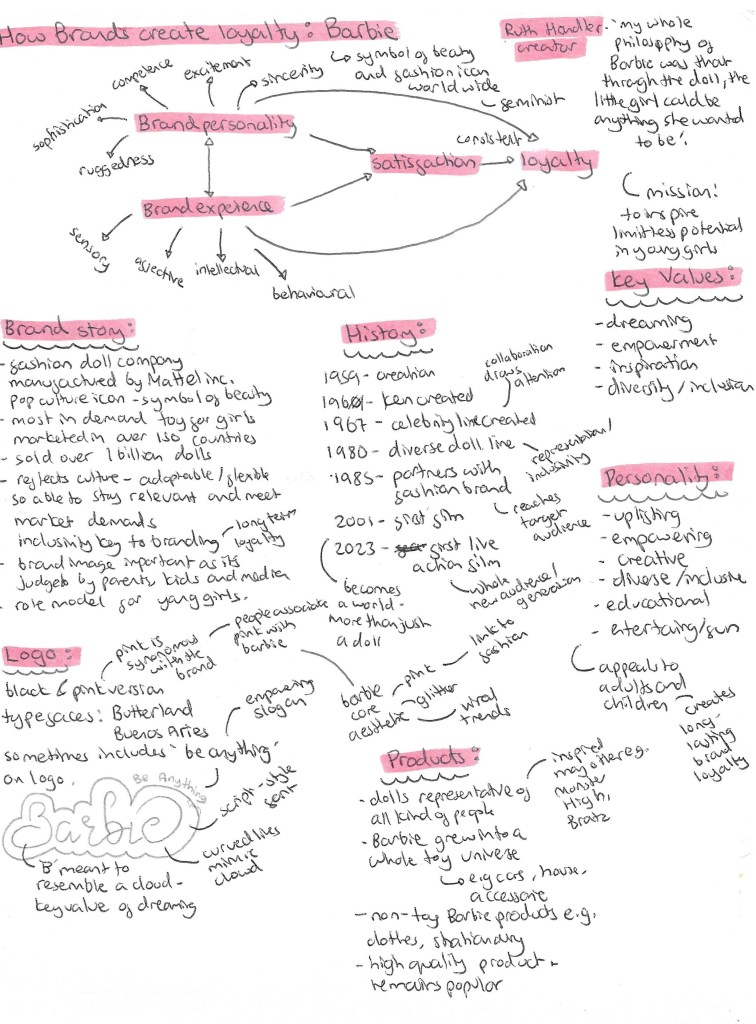 How Brands create loyalty: Barbie
Ruth Handler
creator
- "my whole
philosophy of
Barbie was that
through the doll, the
little girl could be
anything she wanted
to be".
mission:
to inspire
limitless potential
in young girls
competence
excitement
sincerity
symbol of beauty
and fashion icon
worldwide
feminist
sophistication
Brand personality
ruggedness
satisfaction
consistent
loyalty
Brand experience
sensory
affective
intellectual
behavioural
Key Values:
- dreaming
- empowerment
- inspiration
- diversity/inclusion
Brand story:
- fashion doll company
manufactured by Mattel inc.
pop culture icon - symbol of beauty
- most in demand toy for girls
marketed in over 150 countries
- sold over 1 billion dolls
- reflects culture - adaptable/flexible
so able to stay relevant and meet
market demands
inclusivity key to branding
long term
loyalty
- brand image important as its
judged by parents, kids and media
- role model for young girls.
History:
1959 - creation
1960 - ken created
1967 - celebrity line created
collaboration
draws
attention
1980 - diverse doll line
representation/
inclusivity
1985 - partners with
fashion brand
reaches
target
audience
2001 - first film
2023 - first live
action film
whole
new audience/
generation
becomes
a world -
more than just
a doll
Personality:
- uplifting
- empowering
- creative
- diverse/inclusive
- educational
- entertaing/fun
appeal to
adults and
children
creates
long-
lasting
brand
loyalty
Logo:
pink is
synonomous
with the
brand
people associate
pink with
barbie
black & pink version
typefaces: Butterland
Buenos Aries
sometimes includes 'be anything'
on logo.
empowering
slogan
Be Anything
Barbie
script-style
font
curved lines
mimic
cloud
'B' meant to
resemble a cloud -
key value of dreaming
barbie
core
aesthetic
pink
link to
fashion
glitter
viral
trends
Products:
- dolls representative of
all kind of people
inspired
many other e.g.
monster
High,
Bratz
- Barbie grew into a
whole toy universe
e.g cars, house,
accessorie
- non-toy Barbie products e.g.
clothes, stationary
- high quality product -
remains popular